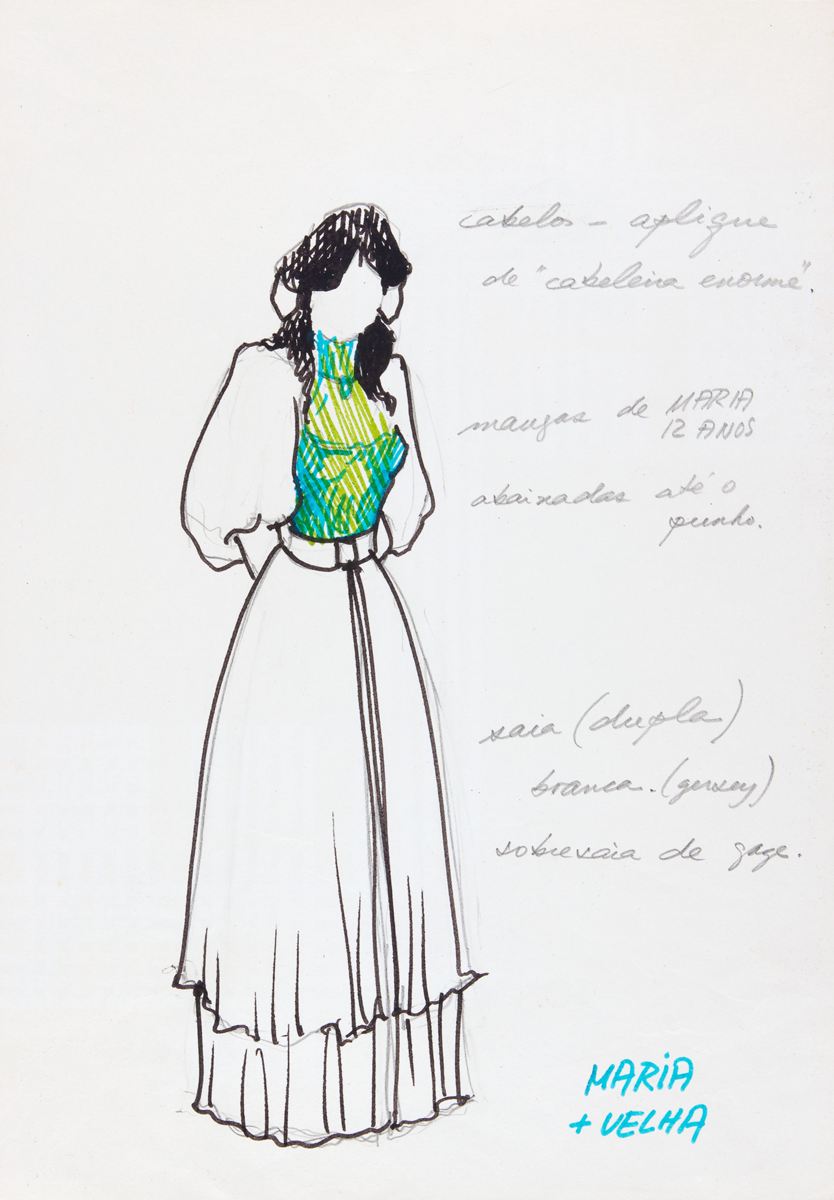 cabelos - aplique
de "cabeleira enorme".
mangas de MARIA
12 ANOS
abaixadas até o
punho.
saia (dupla)
branca. (gersey)
sobresaia de gaze.
MARIA
+ VELHA